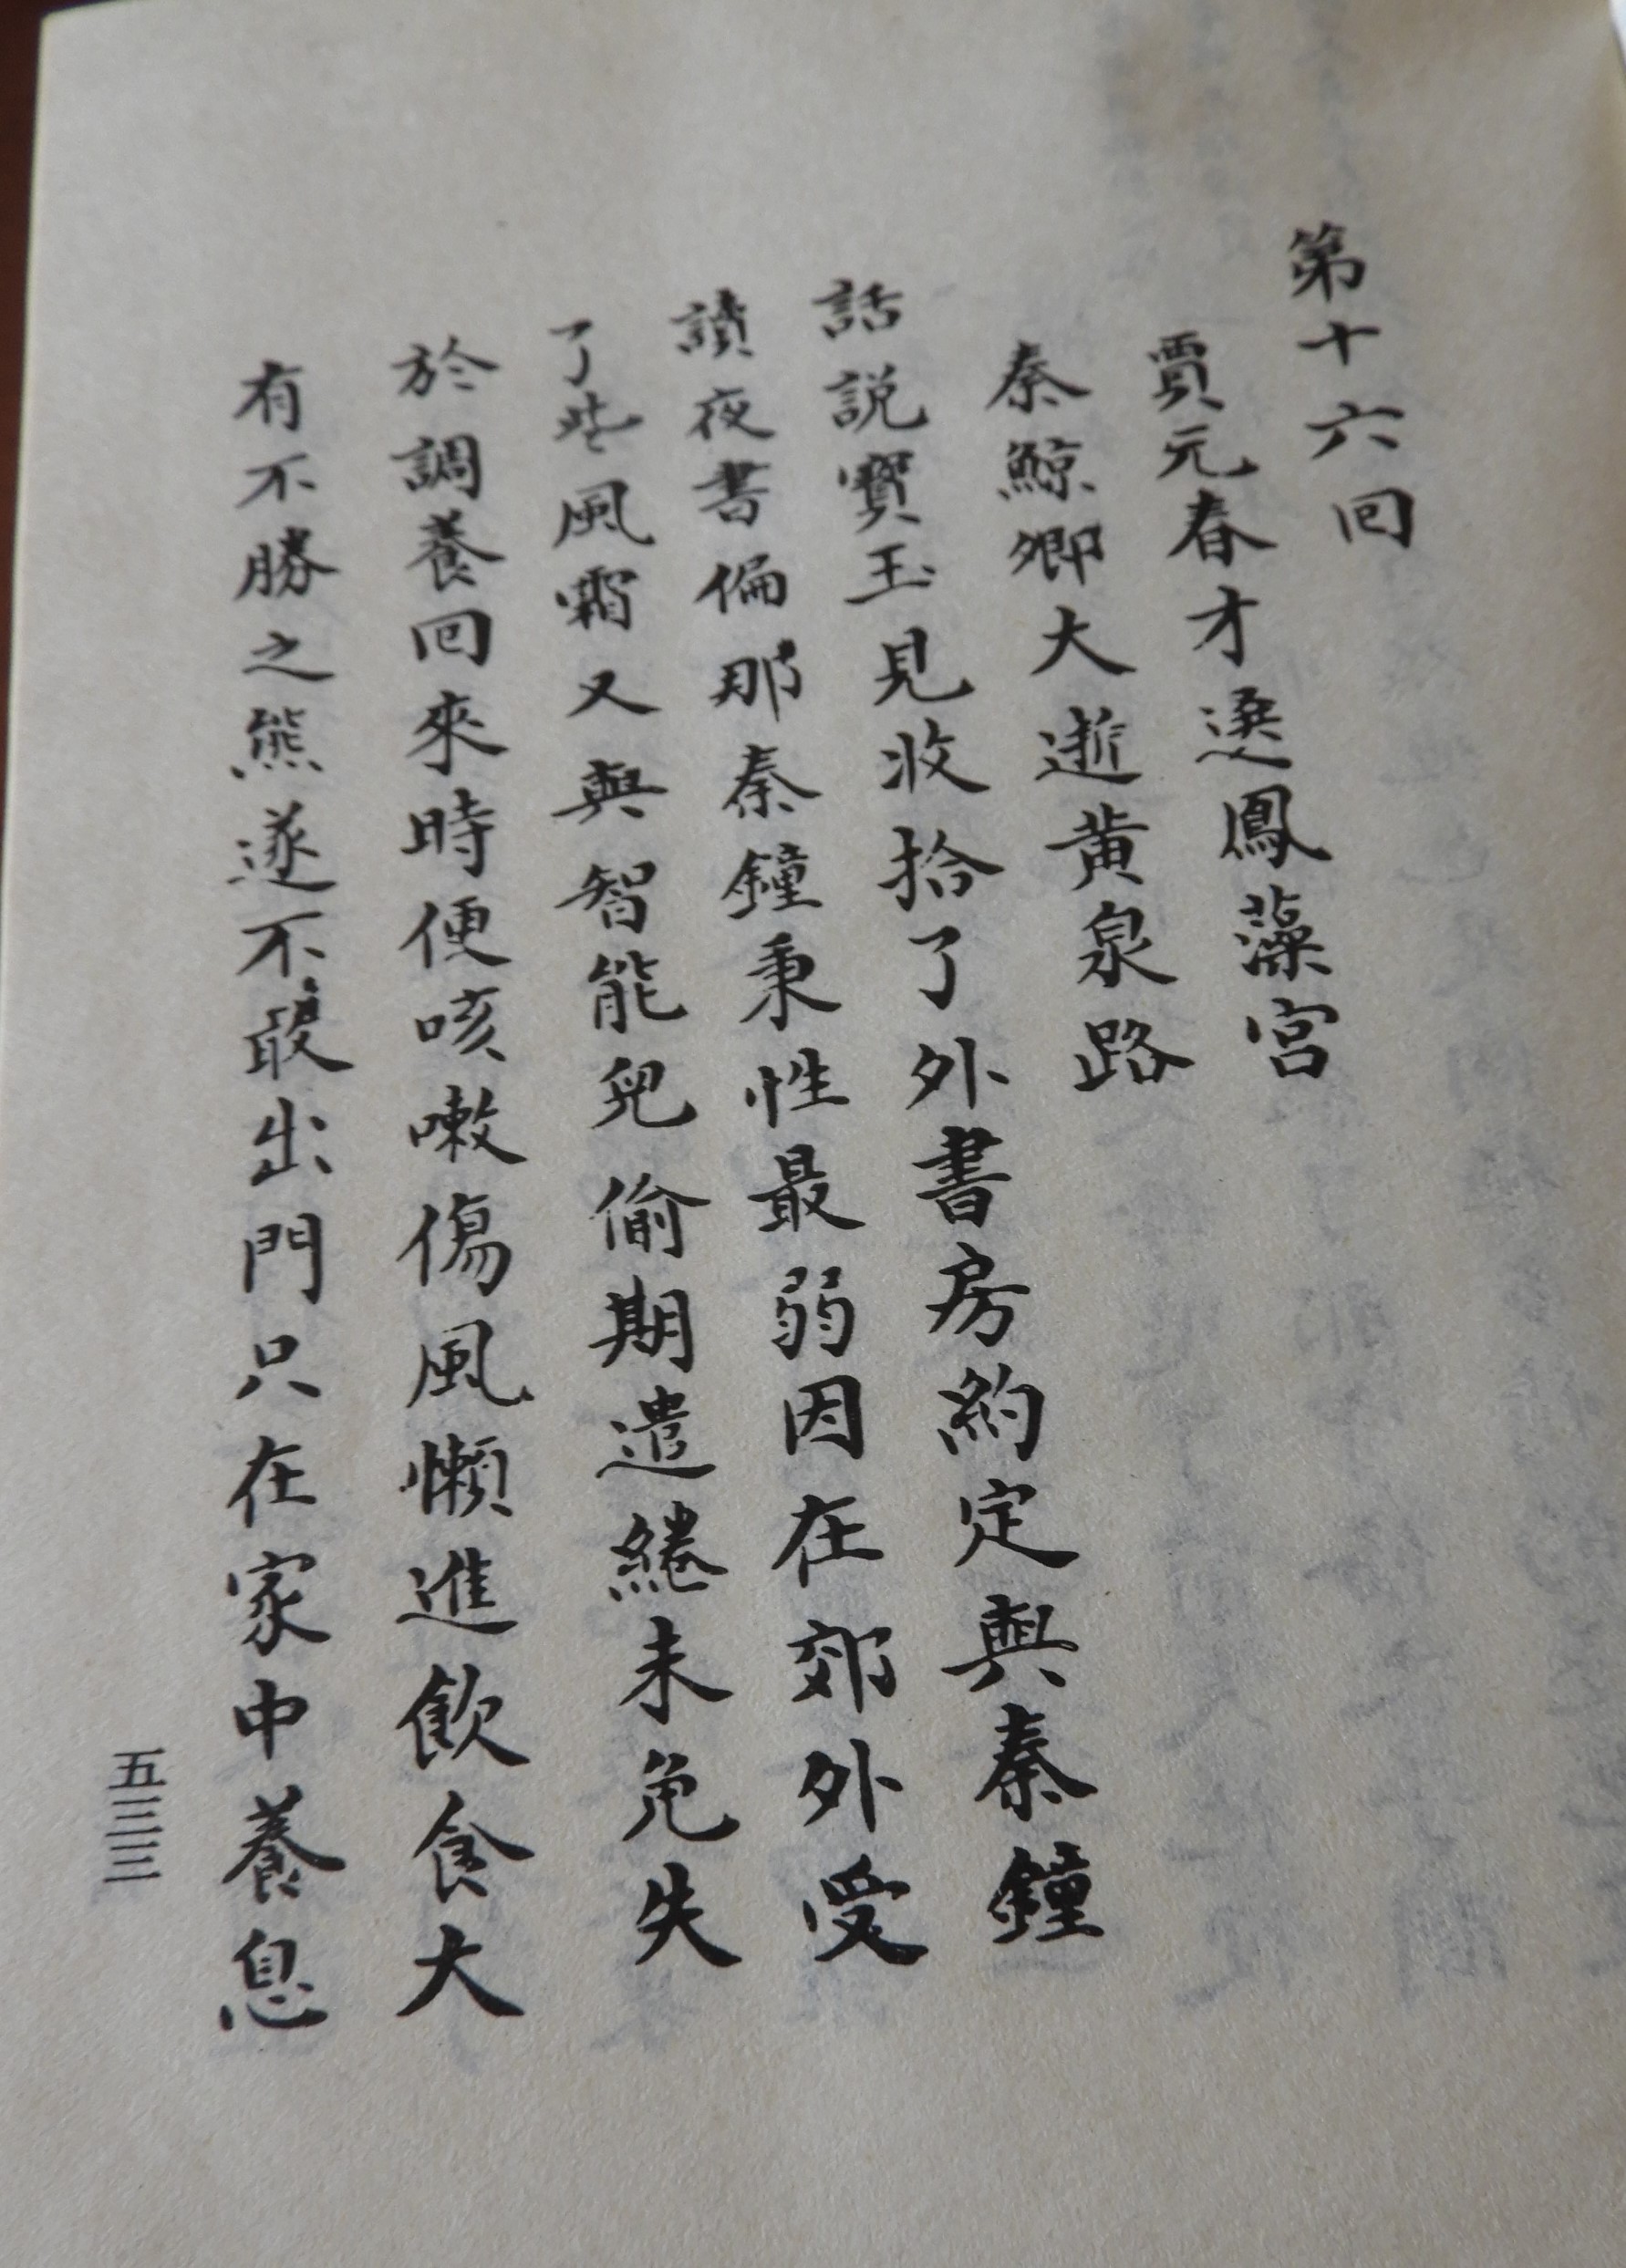 第十六回
賈元春才選鳳藻宮
秦鯨卿大逝黄泉路
話説寳玉見收拾了外書房約定與秦鐘
讀夜書偏那秦鐘秉性最弱因在郊外受
了些風霜又與智能兒偷期遣綣未免失
於調養回來時便咳嗽傷風懶進飲食大
有不勝之熊遂不敢出門只在家中養息
五三三